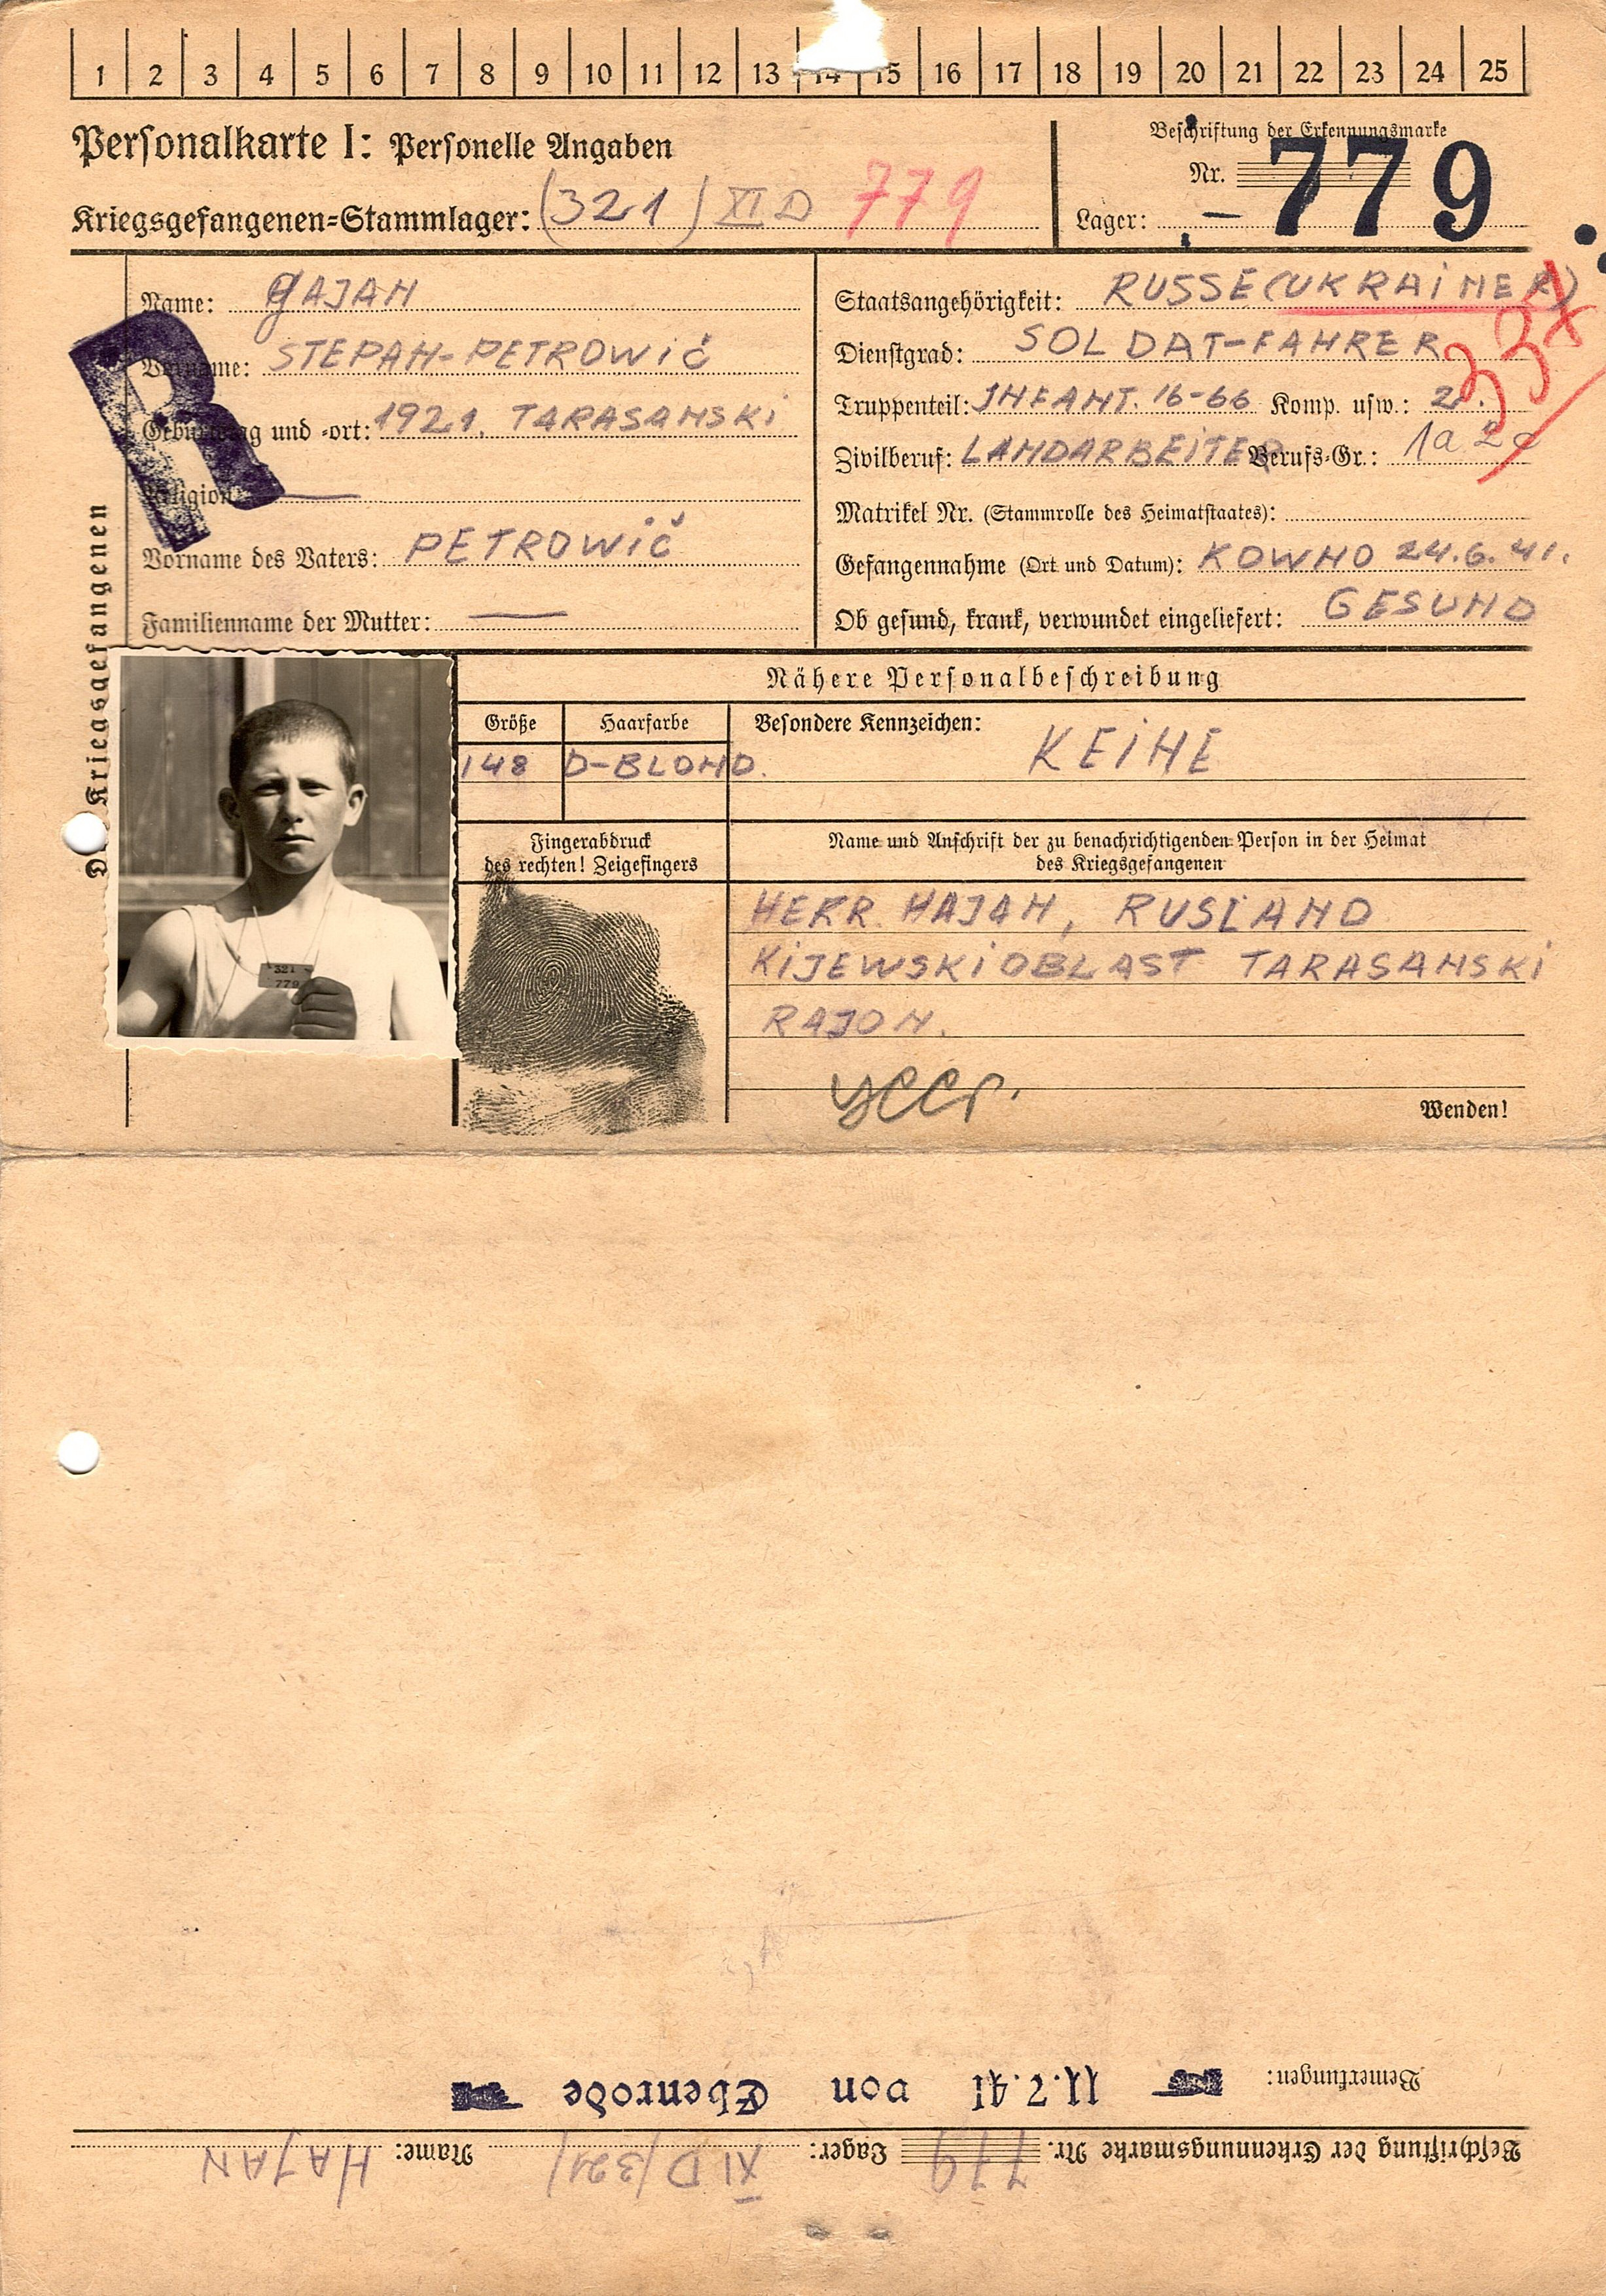 1 2 3 4 5 6 7 8 9 10 11 12 13 14 15 16 17 18 19 20 21 22 23 24 25
Personalkarte I: Personelle Angaben
Kriegsgefangenen=Stammlager: (321) XI D 779
Beschriftung der Erkennungsmarke
Nr. 779
Lager: –
Des Kriegsgefangenen
Name: GAJAN
Vorname: STEPAN-PETROWIČ
Geburtstag und =ort: 1921. TARASANSKI
Religion: —
Vorname des Vaters: PETROWIČ
Familienname der Mutter: —
R
Staatsangehörigkeit: RUSSE (UKRAINER)
Dienstgrad: SOLDAT-FAHRER
Truppenteil: INFANT. 16-66 Komp. usw.: 2.
Zivilberuf: LANDARBEITER Berufs=Gr.: 1a 2c
Matrikel Nr. (Stammrolle des Heimatstaates):
Gefangennahme (Ort und Datum): KOWNO 24.6.41.
Ob gesund, krank, verwundet eingeliefert: GESUND
Nähere Personalbeschreibung
Größe Haarfarbe Besondere Kennzeichen: KEINE
148 D-BLOND.
321
779
Fingerabdruck
des rechten! Zeigefingers
Name und Anschrift der zu benachrichtigenden Person in der Heimat
des Kriegsgefangenen
HERR HAJAN, RUSLAND
KIJEWSKI OBLAST TARASANSKI
RAJON.
УССР.
Wenden!
Bemerkungen: 11.7.41 von Ebenrode
Beschriftung der Erkennungsmarke Nr. 779 Lager: XI D (321) Name: HAJAN